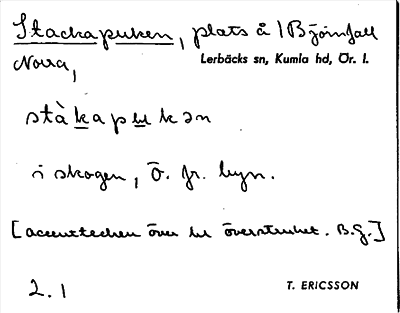 Stackapuken, plats å 1 Björnfall
Norra,
Lerbäcks sn, Kumla hd, Ör. l.
stàkapukən
i skogen, Ö. fr. byn.
[accenttecken över u överstruket. B.G.]
2.1
T. ERICSSON